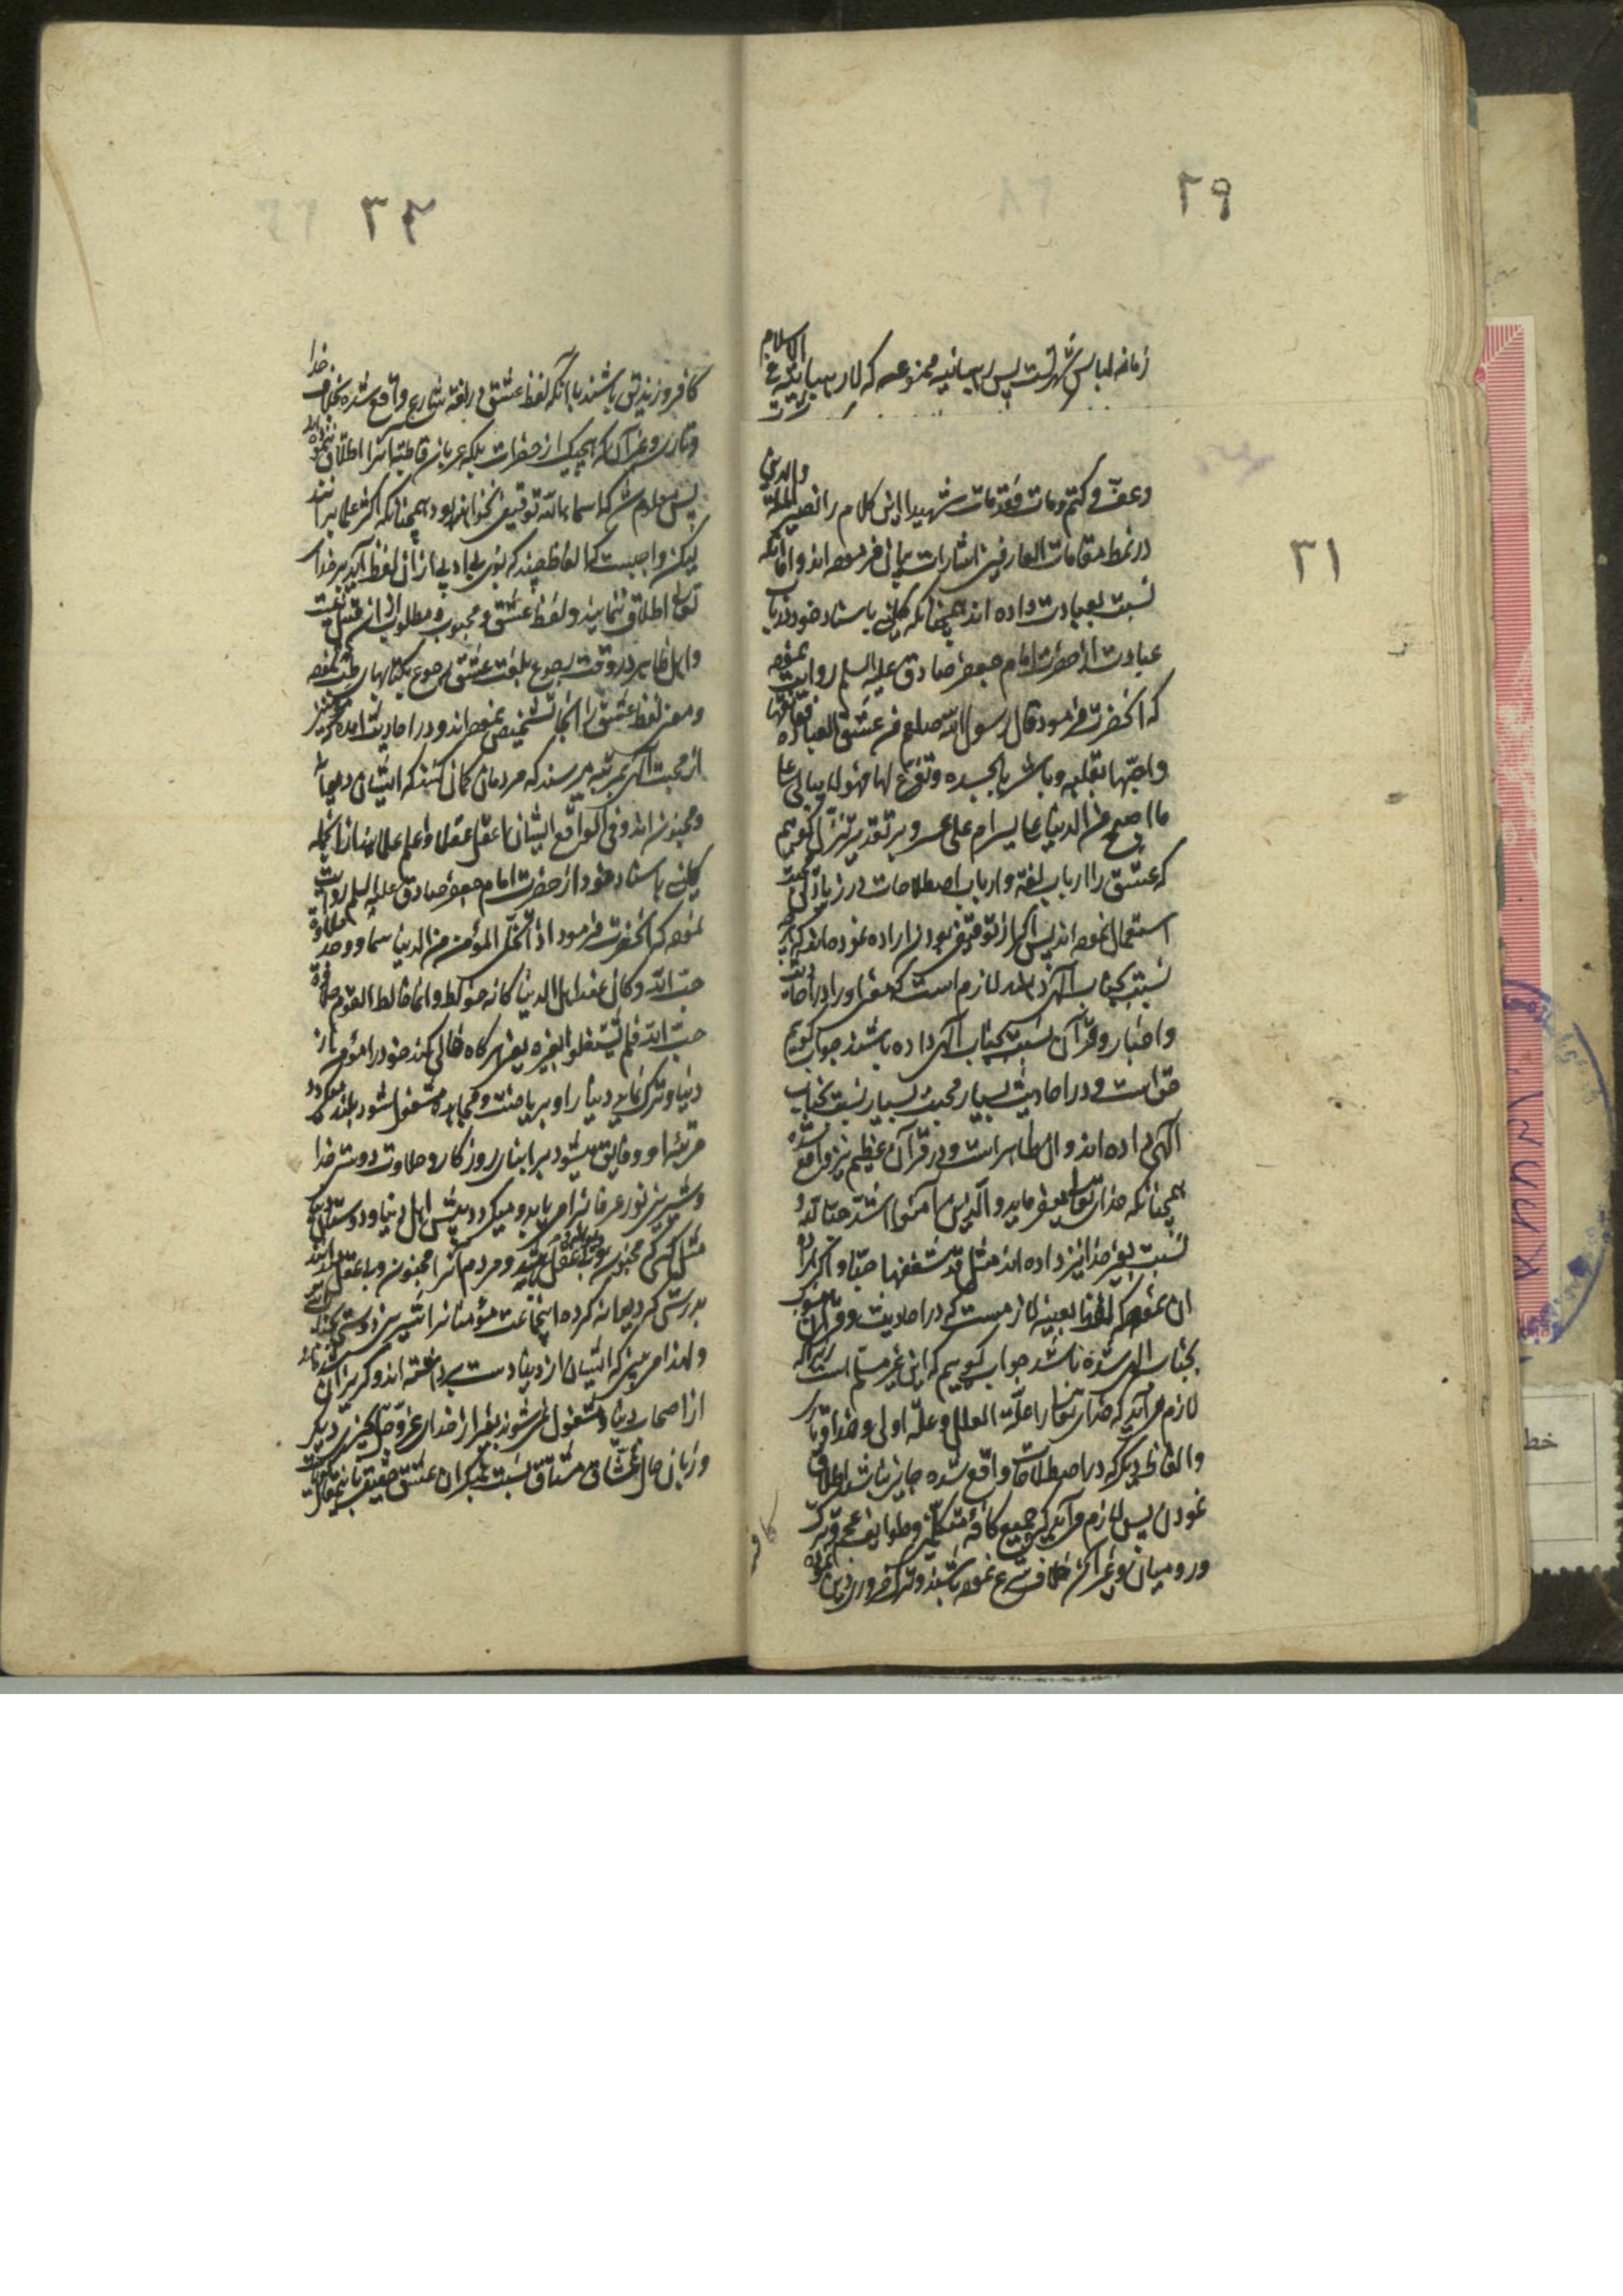 ۲۹
زمانه لباس شهرتست پس رهبانیه ممنوعه که لا رهبانیة فی الاسلام
۳۱
وعف وکتم ومات فقد مات شهیدا این کلام را نصیر الملة والدین
در نمط مقامات العارفین اشارات بیان فرموده اند و اما آنکه
نسبت بعبادت داده اند همچنانکه کلینی باسناد خود در باب
عبادت از حضرت امام جعفر صادق علیه السلم روایت نموده
که آنحضرت فرمود قال رسول الله صلعم من عشق العبادة فعانقها
واحبها بقلبه وباشرها بجسده وتفرغ لها فهو لا یبالی علی
ما اصبح من الدنیا علی یسر ام علی عسر و بر تقدیر تنزل گوییم
که عشق را ارباب لغة و ارباب اصطلاحات در زیادتی محبت
استعمال نموده اند پس اگر از توقیفی بودن اراده نموده اند که
نسبت بجناب الهی لازم است که او را در احادیث
و اخبار و قرآن نسبت بجناب الهی داده باشند جواب گوییم
حق است و در احادیث بسیار محبت بسیار نسبت بجناب
الهی داده اند و آن ظاهر است و در قرآن عظیم نیز واقع شده
همچنانکه خدای تعالی میفرماید والذین آمنوا اشد حبا لله و
نسبت بغیر خدا نیز داده اند مثل قد شغفها حبا و اگر اراده
آن نموده که بعینه لازمست که در احادیث و قرآن منسوب
بجناب الهی شده باشد جواب گوییم که این غیر مسلم است زیرا که
لازم می آید که خدای تعالی را علة العلل و علة اولی و خدا و
و الفاظ دیگر که در اصطلاحات واقع شده جایز نباشد اطلاق
نمودن پس لازم می آید که جمیع کافه متکلمین و طوایف عجم و ترک
و رومیان و غیر آن خلاف شرع نموده باشند و
کافر
۳۲
کافر و زندیق باشند با آنکه لفظ عشق در لغة شارع واقع شده بخلاف خدا
و تاری و غیر آن که هیچیک از حضرات بلکه عربان قاطبة آنرا اطلاق ننموده اند
پس معلوم شد که اسماء الله توقیفی نخواهد بود همچنانکه اکثر علما برانند
لیکن واجبست که الفاظ چند که بوی بی ادبی از آن لفظ آید بر خدای
تعالی اطلاق ننمایند و لفظ عشق و محبوب و مطلوب از آن قبیل نیست
و اهل ظاهر در وقت رجوع بلغت عشق رجوع بکتابهای طب نموده
و معنی لفظ عشق را از آنجا تشخیص نموده اند و در احادیث آمده
از محبت الهی بمرتبه میرسند که مردمان گمان کنند که ایشان دیوانه
و مجنون اند و فی الواقع ایشان اعقل عقلا و اعلم علمایند از آنجمله
کلینی باسناد خود از حضرت امام جعفر صادق علیه السلم روایت
نموده که آنحضرت فرمود اذا تخلی المؤمن من الدنیا سما و وجد حلاوة
حب الله وکان عند اهل الدنیا کانه خولط وانما خالط القوم حلاوة
حب الله فلم یشتغلوا بغیره یعنی هرگاه خالی کند خود را مؤمن از
دنیا و ترک نماید دنیا را و بریاضت و مجاهده مشغول شود بلند میگردد
مرتبه او و فایق میشود بر ابنای روزگار و حلاوت دوستی خدا
و شیرینی نور عرفانرا می یابد و میگردد پیش اهل دنیا و دوستان
مثل کسی که مجنون و بی عقل شد و مردم آنرا مجنون و بی عقل دانند
بدرستی که دیوانه کرده اینجماعت مؤمنانرا شیرینی دوستی خدا
و لهذا می بینی که ایشان از دنیا دست برداشته اند و گریزان
از اصحاب دنیا و مشغول نمی شوند بغیر از خدای عز و جل بچیزی دیگر
و زبان حال عشاق مشتاق نسبت بمنکران عشق حقیقی باینمقال